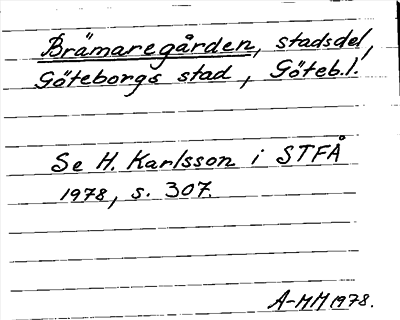 Brämaregården, stadsdel,
Göteborgs stad, Göteb.l.
Se H. Karlsson i STFÅ
1978, s. 307.
A-MM 1978.